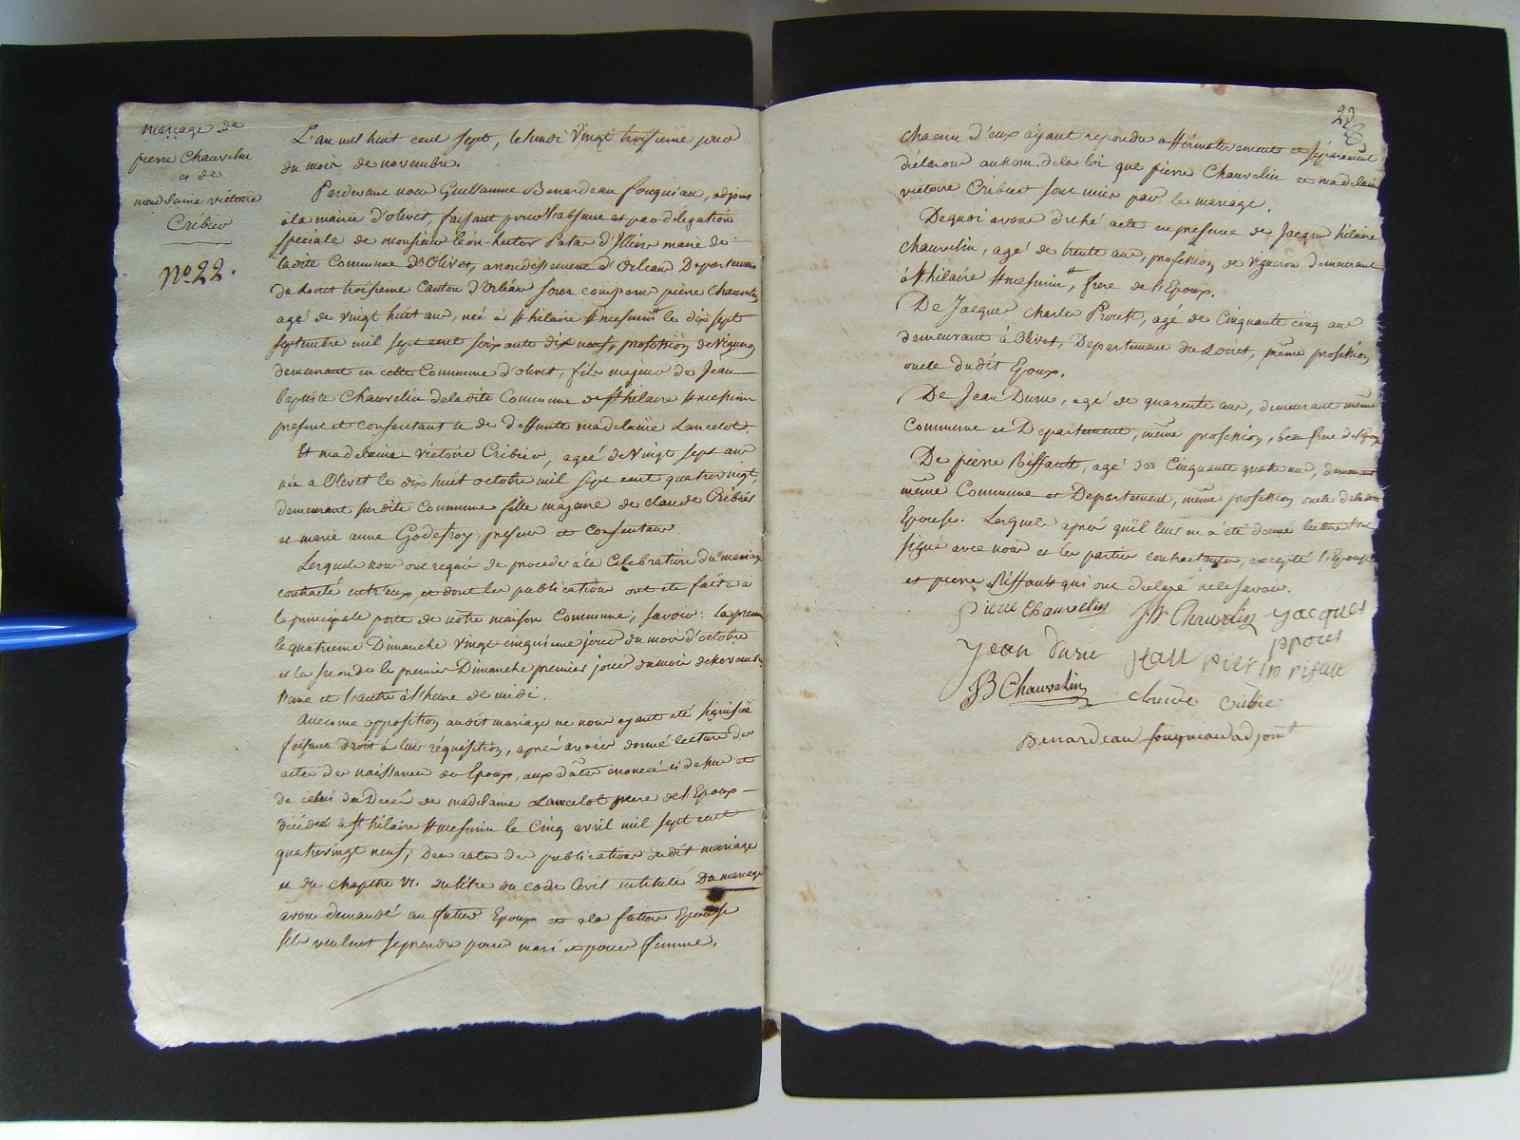 mariage de
pierre Chauvelin
et de
madelaine victoire
Cribier
No 22.
L'an mil huit cent sept, le lundi Vingt troisieme jour
du mois de novembre.
Pardevant nous Guillaume Benardeau fouqueau, adjoint
à la mairie d'olivet, faisant pour l'absence et par délégation
speciale de monsieur léon hector Patas D'Illiers maire de
ladite Commune d'Olivet, arrondissement d'Orleans Departement
du Loiret troisieme Canton d'Orléans sont comparus pierre Chauvelin
agé de vingt huit ans, né à St hilaire St mesmin le dix sept
septembre mil sept cent soixante dix neuf, profession de Vigneron
demeurant en cette Commune d'olivet, fils majeur de Jean
baptiste Chauvelin de ladite Commune de St hilaire St mesmin
present et consentant et de deffunte madelaine Lancelot
Et madelaine victoire Cribier, agée de Vingt sept ans
née a Olivet le dix huit octobre mil sept cent quatrevingt,
demeurant susdite Commune fille majeure de claude Cribier
et marie anne Godefroy presens et Consentans
Lesquels nous ont requis de proceder à la Celebration du mariage
contracté entr'eux, et dont les publications ont été faites a
la principale porte de nôtre maison Commune; savoir: la premiere
le quatrieme Dimanche Vingt cinquieme jour du mois d'octobre
et la seconde le premier Dimanche premier jour du mois de Novembre
l'une et l'autre à l'heure de midi.
Aucune opposition audit mariage ne nous ayant eté signifiée
faisant droit à leur réquisition, après avoir donné lecture des
actes de naissance des Epoux, aux dates enoncées ci dessus et
de celui du Decès de madelaine Lancelot mere de l'Epoux
décédée à St hilaire St mesmin le Cinq avril mil sept cent
quatrevingt neuf, Des actes de publications dudit mariage
et du chapitre VI. du titre du code Civil intitulé Du mariage
avons demandé au futur Epoux et a la future Epouse
s'ils veulent se prendre pour mari et pour femme,
23
chacun d'eux ayant repondu affirmativement et séparément
déclarons au nom de la loi que pierre Chauvelin et madelaine
victoire Cribier sont unis par le mariage.
De quoi avons dréssé acte en présence de Jacques hilaire
Chauvelin, agé de trente ans, profession de vigneron demeurant
à St hilaire St mesmin, frere de l'Epoux.
De Jacques charles Proust, agé de Cinquante cinq ans
demeurant à Olivet, Departement du Loiret, même profession,
oncle dudit Epoux.
De Jean Duru, agé de quarante ans, demeurant même
Commune et Departement, même profession, beau frere de l'Epoux
De pierre Riffault, agé de Cinquante quatre ans, demeurant
même Commune et Departement, même profession oncle de la ditte
Epouse. Lesquels après qu'il leur en a été donné lecture l'ont
signé avec nous et les parties contractantes, excepté l'Epouse
et pierre Riffault qui ont declaré ne le savoir.
pierre Chauvelin JH Chauvelin jacques
pprous
jean duru jean pierre
JB Chauvelin claude Cribie
Benardeau fouqueau adjoint